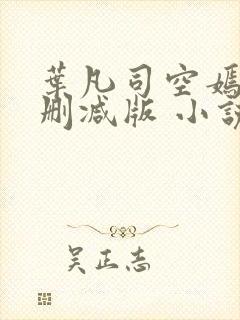 葉凡司空嫣
刪减版 小說
吴正志